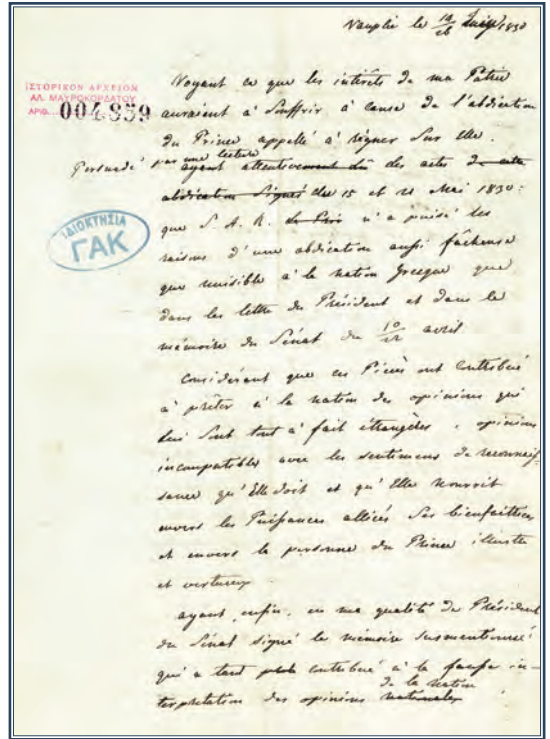 Nauplie le 14/26 1830
ΙΣΤΟΡΙΚΟΝ ΑΡΧΕΙΟΝ
ΑΛ. ΜΑΥΡΟΚΟΡΔΑΤΟΥ
ΑΡΙΘ. 004859
ΙΔΙΟΚΤΗΣΙΑ
ΓΑΚ
Voyant ce que les intérêts de ma Patrie
auraient à souffrir à cause de l'abdication
du Prince appellé à règner sur elle.
Persuadé par une lecture
ayant attentivement des actes de cette
abdication signés du 15 et 21 Mai 1830:
que S. A. R. n'a puisé les
raisons d'une abdication aussi fâcheuse
que nuisible à la nation Grecque que
dans les lettre du Président et dans le
mémoire du Sénat du 10/22 avril
Considérant que ces Pièces ont contribué
à prêter à la nation des opinions qui
lui sont tout à fait étrangères, opinions
incompatibles avec les sentimens de reconnais-
sance qu'Elle doit et qu'Elle nourrit
envers les Puissances alliées ses bienfaitrices
et envers la personne du Prince illustre
et vertueux
ayant enfin, en ma qualité de Président
du Sénat signé le mémoire susmentionné
qui a tant contribué à la fausse in-
de la nation
terprétation des opinions nationales